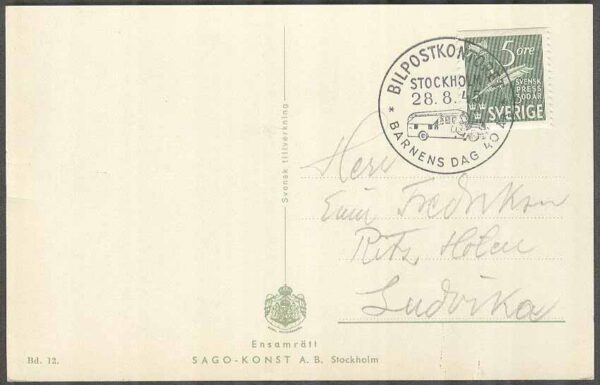 BILPOSTKONTORET
STOCKHOLM
28.8.45
* BARNENS DAG 40 ÅR
5 ÖRE
SVENSK
PRESS
300 ÅR
SVERIGE
Svensk tillverkning
Herr
Fredrikson
Ludvika
Ensamrätt
Bd. 12.
SAGO-KONST A.B. Stockholm